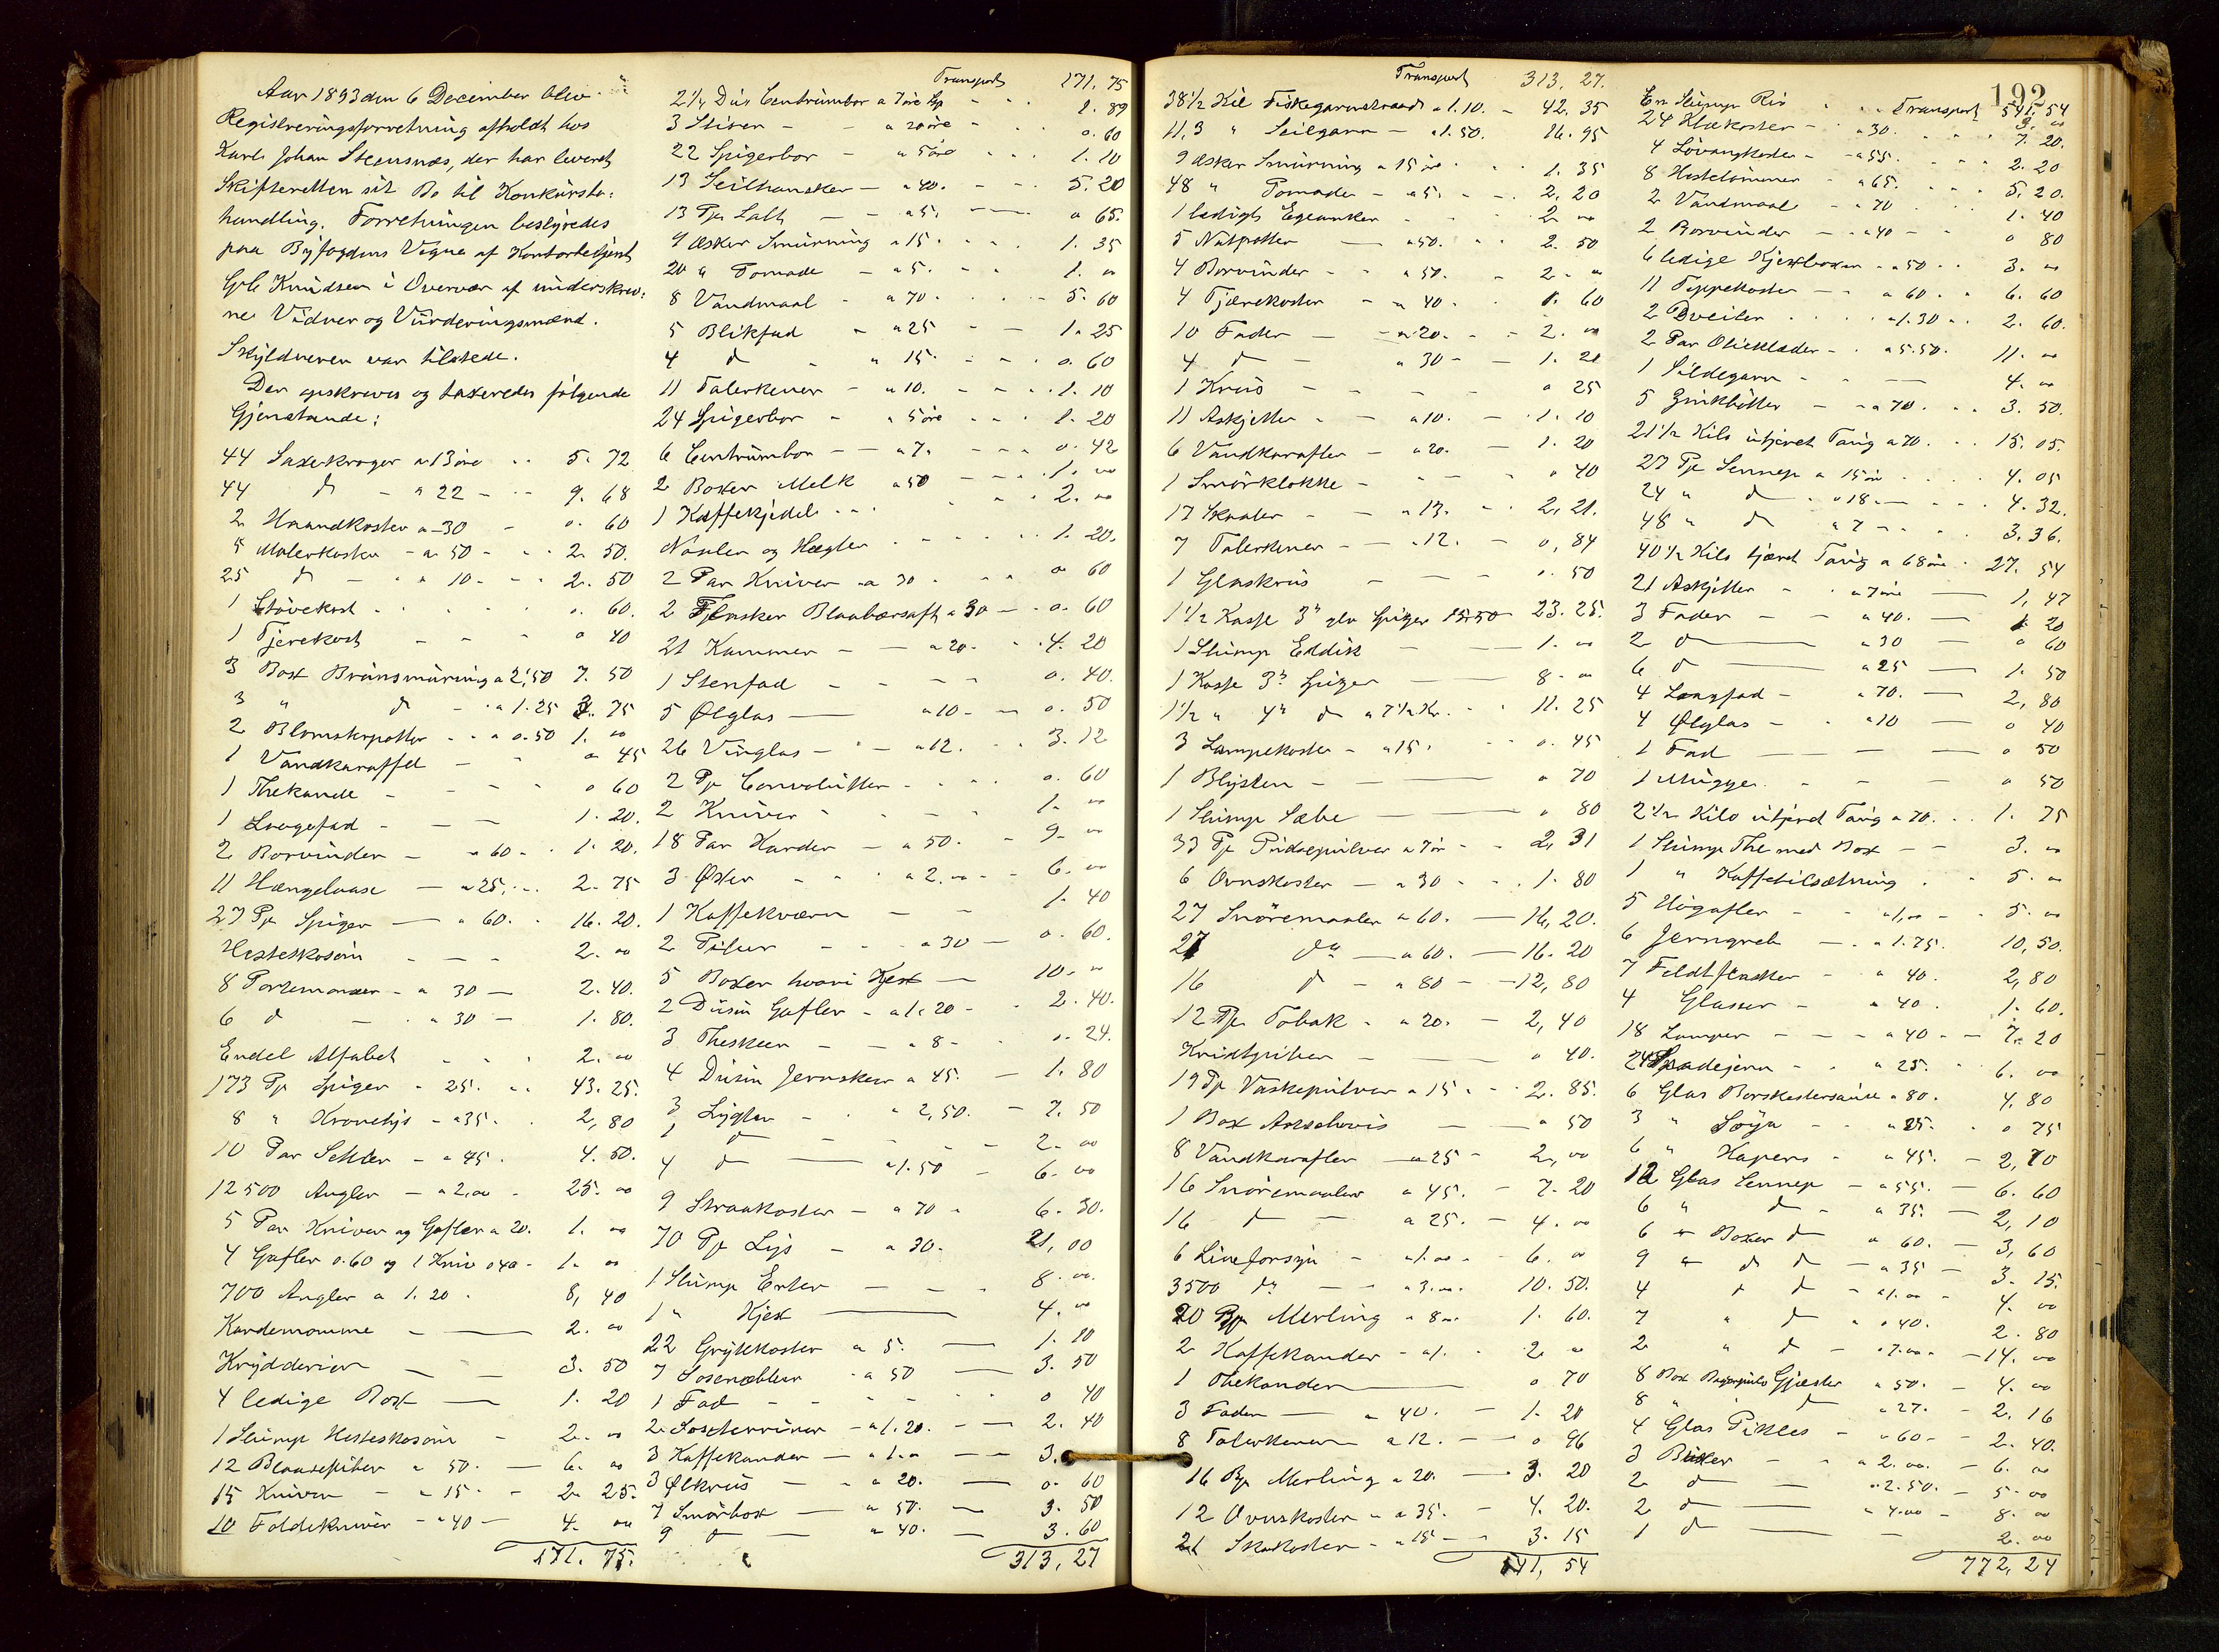 Aar 1893 den 6 December blev
Registreringsforretning afholdt hos
Karl Johan Steensnæs, der har leveret
Skifteretten sit Bo til Konkursbe:
handling. Forretningen bestyredes
paa Byfogdens Vegne af Kontorbetjent
Knudsen i Overvær af underskrev:
ne Vidner og Vurderingsmænd.
Skyldneren var tilstede.
Der opskreves og taxeredes følgende
Gjenstande:
44 Saxekroger a 13 øre 5. 72
44 d a 22 9. 68
2 Haandkoster a 30 0. 60
5 Malerkoster a 50 2. 50.
25 d a 10 2. 50
1 Støvekost 0. 60.
1 Tjerekost 0 40
3 Box Brunsmuring a 2,50 7. 50
3 " d a 1.25 3. 75
2 Blomsterpotter a 0.50 1. 00
1 Vandkaraffel 0 45
1 Thekande 0 60
1 Langefad 1. 20.
2 Borvinder a 60 1. 20.
11 Hængelaase a 25 2. 75
27 Pk Spiger a 60. 16. 20.
Hesteskosøm 2. 00
8 Portemonæer a 30 2. 40.
6 d a 30 1. 80.
Endel Alfabet 2. 00
173 Pk Spiger a 25. 43. 25.
8 " Kronelys a 35. 2,80
10 Par Sehler a 45. 4. 50.
12500 Angler a 2,00 25. 00
5 Par Kniver og Gafler a 20. 1. 00
4 Gafler 0.60 og 1 Kniv 0 40 1. 00
700 Angler a 1. 20. 8, 40
Kardemomme 2. 00
Krydderier 3. 50
4 ledige Box 1. 20
1 Slump Hesteskosøm 2. 00
12 a 50. 6. 00
15 Kniver a 15. 2. 25.
10 Foldekniver a 40 4. 00
171. 75.
Transport 171. 75
2 1/4 Dus Centrumbor a 7 øre 1. 89
3 a 20 øre 0. 60
22 Spigerbor a 5 øre 1. 10
13 Seilhansker a 40. 5. 20
13 Pk Salt a 5. 0 65.
9 Æsker Smurning a 15. 1. 35
20 a Pomade a 5. 1. 00
8 Vandmaal a 70. 5. 60
5 Blikfad a 25 1. 25
4 d a 15. 0. 60
11 Talerkener a 10. 1. 10
24 Spigerbor a 5 øre 1. 20
6 Centrumbor a 7. 0. 42
2 Boxer Melk a 50 1. 00
1 Kaffekjedel 2. 00
og Hægter 1. 20.
2 Par Kniver a 30 0 60
2 Flasker Blaabærsaft a 30 0. 60
21 Kammer a 20. 4. 20
1 Stenfad 0. 40.
5 Ølglas a 10 0. 50
26 Vinglas a 12. 3. 12
2 Pk Convolutter 0. 60
2 Kniver 1. 00
18 Par Karder a 50. 9. 00
3 Øxer a 2.00 6. 00
1 Kaffekværn 1. 40
2 Piber a 30 0. 60.
5 Boxer hvori Kjex 10. 00
2 Dusin Gafler a 1. 20 2. 40.
3 Theskeer a 8 0. 24.
4 Dusin Jernskeer a 45. 1. 80
3 Lygter a 2,50. 7. 50
1 d 2. 00
4 d a 1. 50 6. 00
9 Straakoster a 70 6. 30.
70 Pk Lys a 30. 21, 00
1 Slump Erter 8. 00.
1 " Kjex 4. 00
22 Grydekoster a 5. 1. 10
7 a 50 3. 50
1 Fad 0 40
2 a 1. 20. 2. 40
3 Kaffekander a 1.00 3.
3 Ølkrus a 20. 0. 60
7 Smørbox a 50. 3. 50
9 d a 40. 3. 60
313, 27
Transport 313. 27.
38 1/2 Kil Fiskegarnstraad a 1. 10. 42. 35
11,3 " Seilgarn a 1. 50. 16. 95
9 Æsker Smurning a 15 øre 1. 35
48 " Pomade a 5. 2, 20
1 ledigt Egeanker 2. 00
5 Natpotter a 50. 2. 50
4 Borvinder a 50. 2. 00
4 Tjærekoster a 40. 1. 60
10 Fader a 20. 2. 00
4 d a 30 1. 20
1 Krus 0 25
11 Askjetter a 10. 1. 10
6 Vandkarafler a 20. 1. 20
1 Smørklokke 0 40
17 Skaaler a 13. 2, 21.
7 Talerkener a 12. 0, 84
1 Glaskrus 0. 50
1 1/2 Kasse 3" Spiger 15.50 23. 25.
1 Slump Eddik 1. 00
1 Kasse 3" Spiger 8. 00
1 1/2 " 4" d a 7 1/2 Kr. 11. 25
3 Lampekoster a 15. 0. 45
1 Blysten 0 70
1 Slump Sæbe 0 80
33 Pk Pudsepulver a 7 ør 2, 31
6 Ovnskoster a 30 1. 80
27 Snøremaaler a 60. 16, 20.
27 do a 60. 16. 20
16 d a 80 12, 80
12 Pk Tobak a 20. 2, 40
Kridtpiber 0 40.
19 Pk Vaskepulver a 15 2. 85.
1 Box Anschovis 0 50
8 Vandkarafler a 25 2,00
16 Snøremaaler a 45. 7. 20
16 d a 25. 4. 00
6 Lineforsyn a 1.00 6. 00
3500 do a 3.00. 10. 50.
20 Bp Merling a 8 ør 1. 60.
2 Kaffekander a 1. 2 00
1 Thekander 0 70
3 Fader a 40. 1. 20
8 Talerkener a 12. 0 96
16 Bp Merling a 20. 3. 20
12 Ovnskoster a 35. 4. 20.
21 Skokoster a 15 3. 15
541, 54
192
Transport 541. 54
En Slump Ris 3. 00
24 Klækoster a 30. 7. 20.
4 Lövangkoster a 55. 2. 20
8 a 65. 5. 20.
2 Vandmaal a 70 1. 40
2 Borvinder a 40 0 80
6 ledige Kjexboxer a 50 3. 00
11 Teppekoster a 60. 6. 60
2 Dveiler a 1.30 2. 60.
2 Par Olieklæder a 5.50. 11. 00
1 Sildegarn 4. 00
5 Zinkbøtter a 70. 3. 50.
21 1/2 Kilo utjæret Taug a 70. 15. 05.
27 Pk Sennep a 15 ør 4. 05
24 " d a 18. 4. 32.
48 " d a 7 3. 36.
40 1/2 Kilo tjæret Taug a 68 øre 27. 54
21 Askjetter a 7 øre 1, 47
3 Fader a 40. 1 20
2 d a 30 0 60
6 d a 25 1. 50
4 Langfad a 70. 2, 80
4 Ølglas a 10 0 40
1 Fad 0 50
1 Mugge 0 50
2 1/2 Kilo utjæret Taug a 70. 1. 75
1 Slump The med Box 3. 00
1 " Kaffetilsætning 5. 00
5 Høgafler a 1,00 5. 00
6 Jerngreb a 1.75. 10, 50.
7 Feldtflasker a 40. 2, 80
4 Glasser a 40. 1. 60.
18 Lamper a 40 7. 20
24 Spadejern a 25. 6. 00
6 Glas Worskestersause a 80. 4, 80
3 " Soya a 25. 0 75
6 " Kapers a 45. 2, 70
12 Glas Sennep a 55. 6. 60
6 " d a 35. 2, 10
6 Boxer d a 60. 3, 60
9 d d a 35 3. 15.
4 d a 1.00 4. 00
7 " d a 40. 2. 80
2 " d a 7.00 14. 00
8 Box Gjester a 50. 4. 00
8 " d a 27. 2. 16
4 Glas Pikles a 60 2. 40.
3 a 2. 00. 6. 00
2 d a 2. 50. 5. 00
2 d a 4.00 8. 00
1 d 2. 00
772, 24